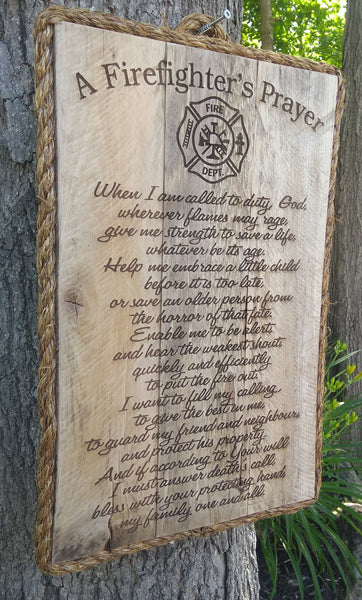 A Firefighter's Prayer
FIRE
DEPT.
When I am called to duty, God,
wherever flames may rage,
give me strength to save a life,
whatever be its age.
Help me embrace a little child
before it is too late,
or save an older person from
the horror of that fate.
Enable me to be alert,
and hear the weakest shout,
quickly and efficiently
to put the fire out.
I want to fill my calling,
to give the best in me,
to guard my friend and neighbours
and protect his property.
And if according to Your will
I must answer death's call,
bless with your protecting hand,
my family one and all.